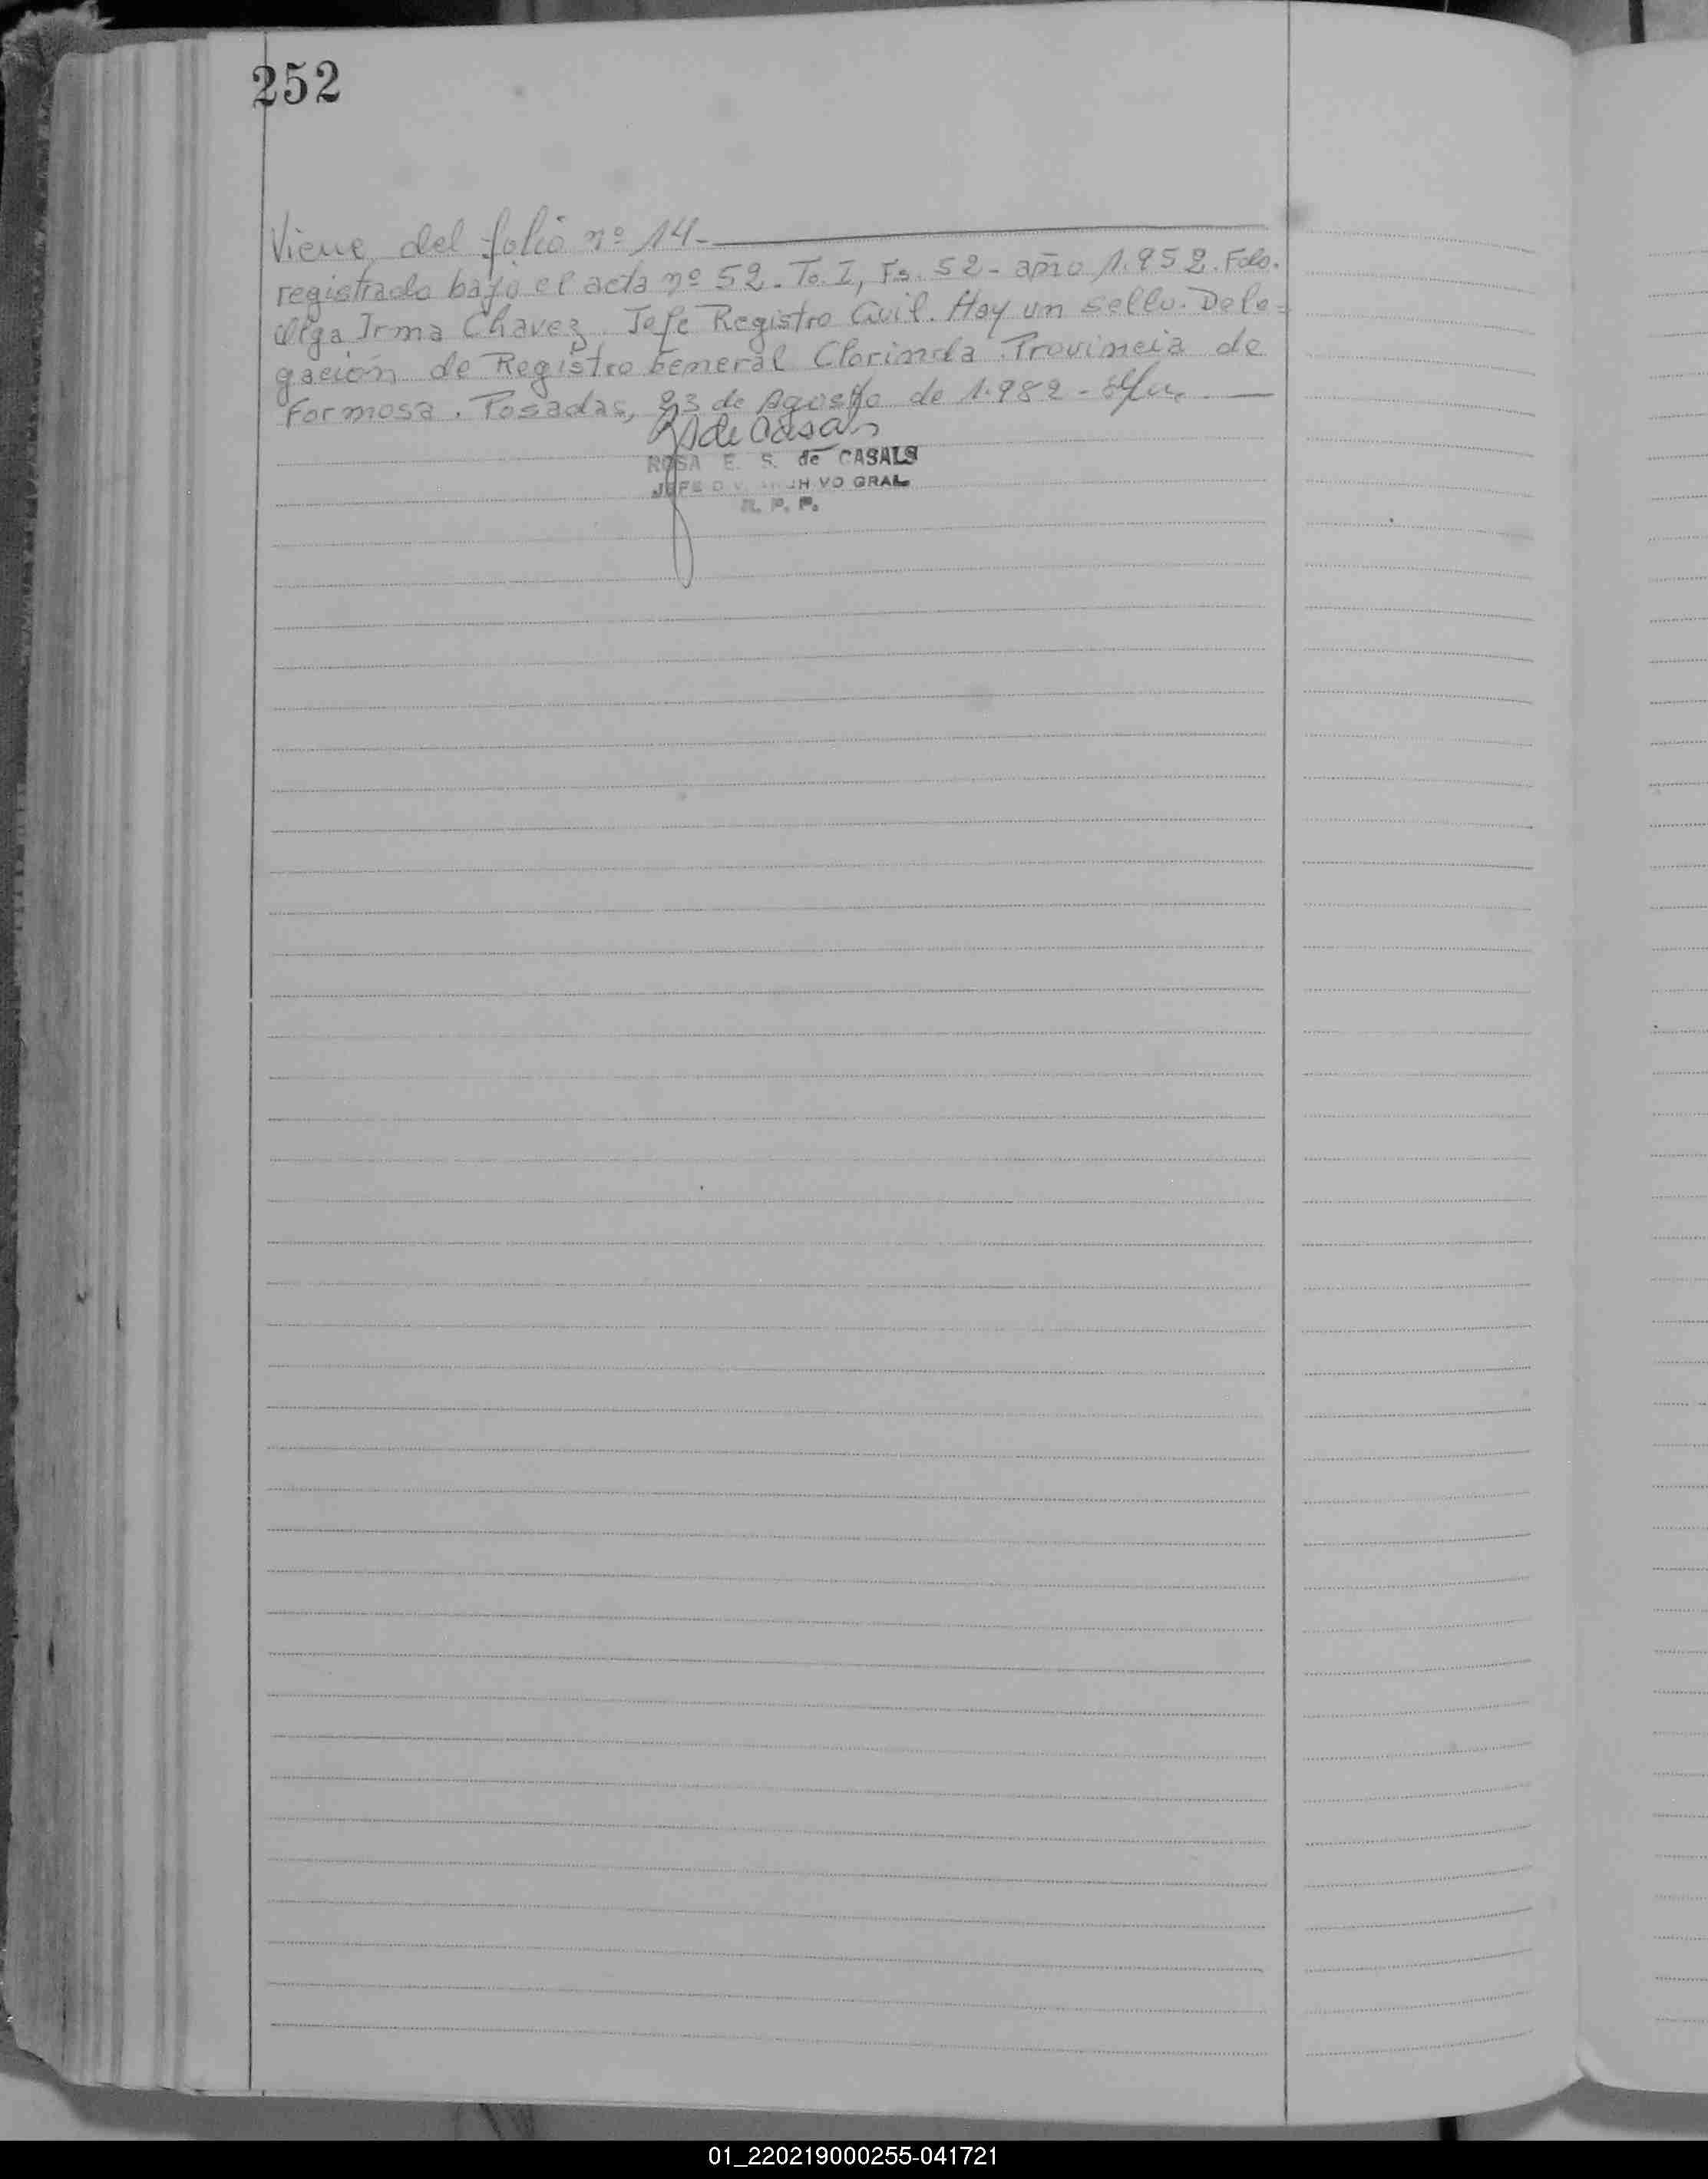 252
Viene del folio nº 14-
registrado bajo el acta nº 52. To. I, Fs. 52 - año 1.952. Fdo.
Olga Irma Chavez. Jefe Registro Civil. Hay un sello. Dele=
gación de Registro General Clorinda. Provincia de
Formosa. Posadas, 23 de Agosto de 1.982 -
de Casals
ROSA E. S. de CASALS
JEFE GRAL
R. P. P.
01_220219000255-041721